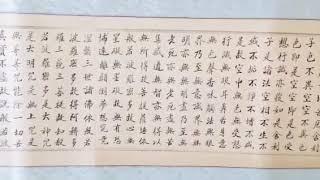 子色不異空空不異色
色即是空空即是色受
想行識亦復如是舍利
子是諸法空相不生不
滅不垢不淨不增不減
是故空中無色無受想
行識無眼耳鼻舌身意
無色聲香味觸法無眼
界乃至無意識界無無
明亦無無明盡乃至無
老死亦無老死盡無苦
集滅道無智亦無得以
無所得故菩提薩埵依
般若波羅蜜多故心無
罣礙無罣礙故無有恐
怖遠離顛倒夢想究竟
涅槃三世諸佛依般若
波羅蜜多故得阿耨多
羅三藐三菩提故知般
若波羅蜜多是大神咒
是大明咒是無上咒是
無等等咒能除一切苦
真實不虛故說般若波